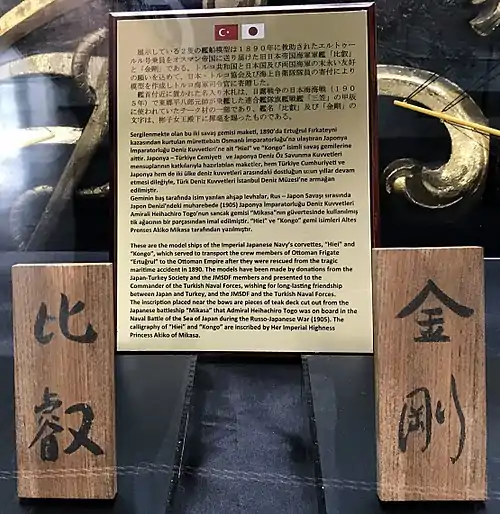 展示している2隻の艦船模型は1890年に救助されたエルトゥー
ルル号乗員をオスマン帝国に送り届けた旧日本帝国海軍軍艦「比叡」
と「金剛」である。トルコ共和国と日本国及び両国海軍の末永い友好
の願いを込めて、日本・トルコ協会及び海上自衛隊隊員の寄付により
模型を作成しトルコ海軍司令官に寄贈した。
艦首付近に置かれた名入り木札は、日露戦争の日本海海戦(190
5年)で東郷平八郎元帥が乗艦した連合艦隊旗艦戦艦「三笠」の甲板
に使われていたチーク材の一部であり、艦名「比叡」及び「金剛」の
文字は、彬子女王殿下に揮毫を賜ったものである。
Sergilenmekte olan bu iki savaş gemisi maketi, 1890'da Ertuğrul Fırkateyni
kazasından kurtulan mürettebatı Osmanlı İmparatorluğu'na ulaştıran Japonya
İmparatorluğu Deniz Kuvvetleri'ne ait "Hiei" ve "Kongo" isimli savaş gemilerine
aittir. Japonya – Türkiye Cemiyeti ve Japonya Deniz Öz Savunma Kuvvetleri
mensuplarının katkılarıyla hazırlatılan maketler, hem Türkiye Cumhuriyeti ve
Japonya hem de iki ülke deniz kuvvetleri arasındaki dostluğun uzun yıllar devam
etmesi dileğiyle, Türk Deniz Kuvvetleri İstanbul Deniz Müzesi'ne armağan
edilmiştir.
Geminin baş tarafında isim yazılan ahşap levhalar, Rus – Japon Savaşı sırasında
Japon Denizi'ndeki muharebede (1905) Japonya İmparatorluğu Deniz Kuvvetleri
Amirali Heihachiro Togo'nun sancak gemisi "Mikasa"nın güvertesinde kullanılmış
tik ağacının bir parçasından imal edilmiştir. "Hiei" ve "Kongo" gemi isimleri Altes
Prenses Akiko Mikasa tarafından yazılmıştır.
These are the model ships of the Imperial Japanese Navy's corvettes, "Hiei" and
"Kongo", which served to transport the crew members of Ottoman Frigate
"Ertuğrul" to the Ottoman Empire after they were rescued from the tragic
maritime accident in 1890. The models have been made by donations from the
Japan-Turkey Society and the JMSDF members and presented to the
Commander of the Turkish Naval Forces, wishing for long-lasting friendship
between Japan and Turkey, and the JMSDF and the Turkish Naval Forces.
The inscription placed near the bows are pieces of teak deck cut out from the
Japanese battleship "Mikasa" that Admiral Heihachiro Togo was on board in the
Naval Battle of the Sea of Japan during the Russo-Japanese War (1905). The
calligraphy of "Hiei" and "Kongo" are inscribed by Her Imperial Highness
Princess Akiko of Mikasa.
比叡
金剛